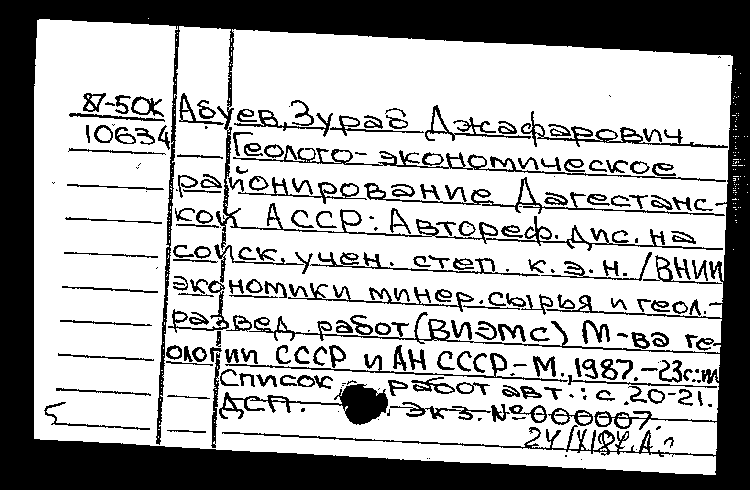 87-50К Абуев, Зураб Джафарович.
10634 Геолого-экономическое
районирование Дагестанс-
кой АССР: Автореф. дис. на
соиск. учен. степ. к. э. н. /ВНИИ
экономики минер. сырья и геол.-
развед. работ (ВИЭМС) М-ва ге-
ологии СССР и АН СССР.-М., 1987.-23с.:ил
Список работ авт.: с. 20-21.
ДСП. Экз. № 000007.
5